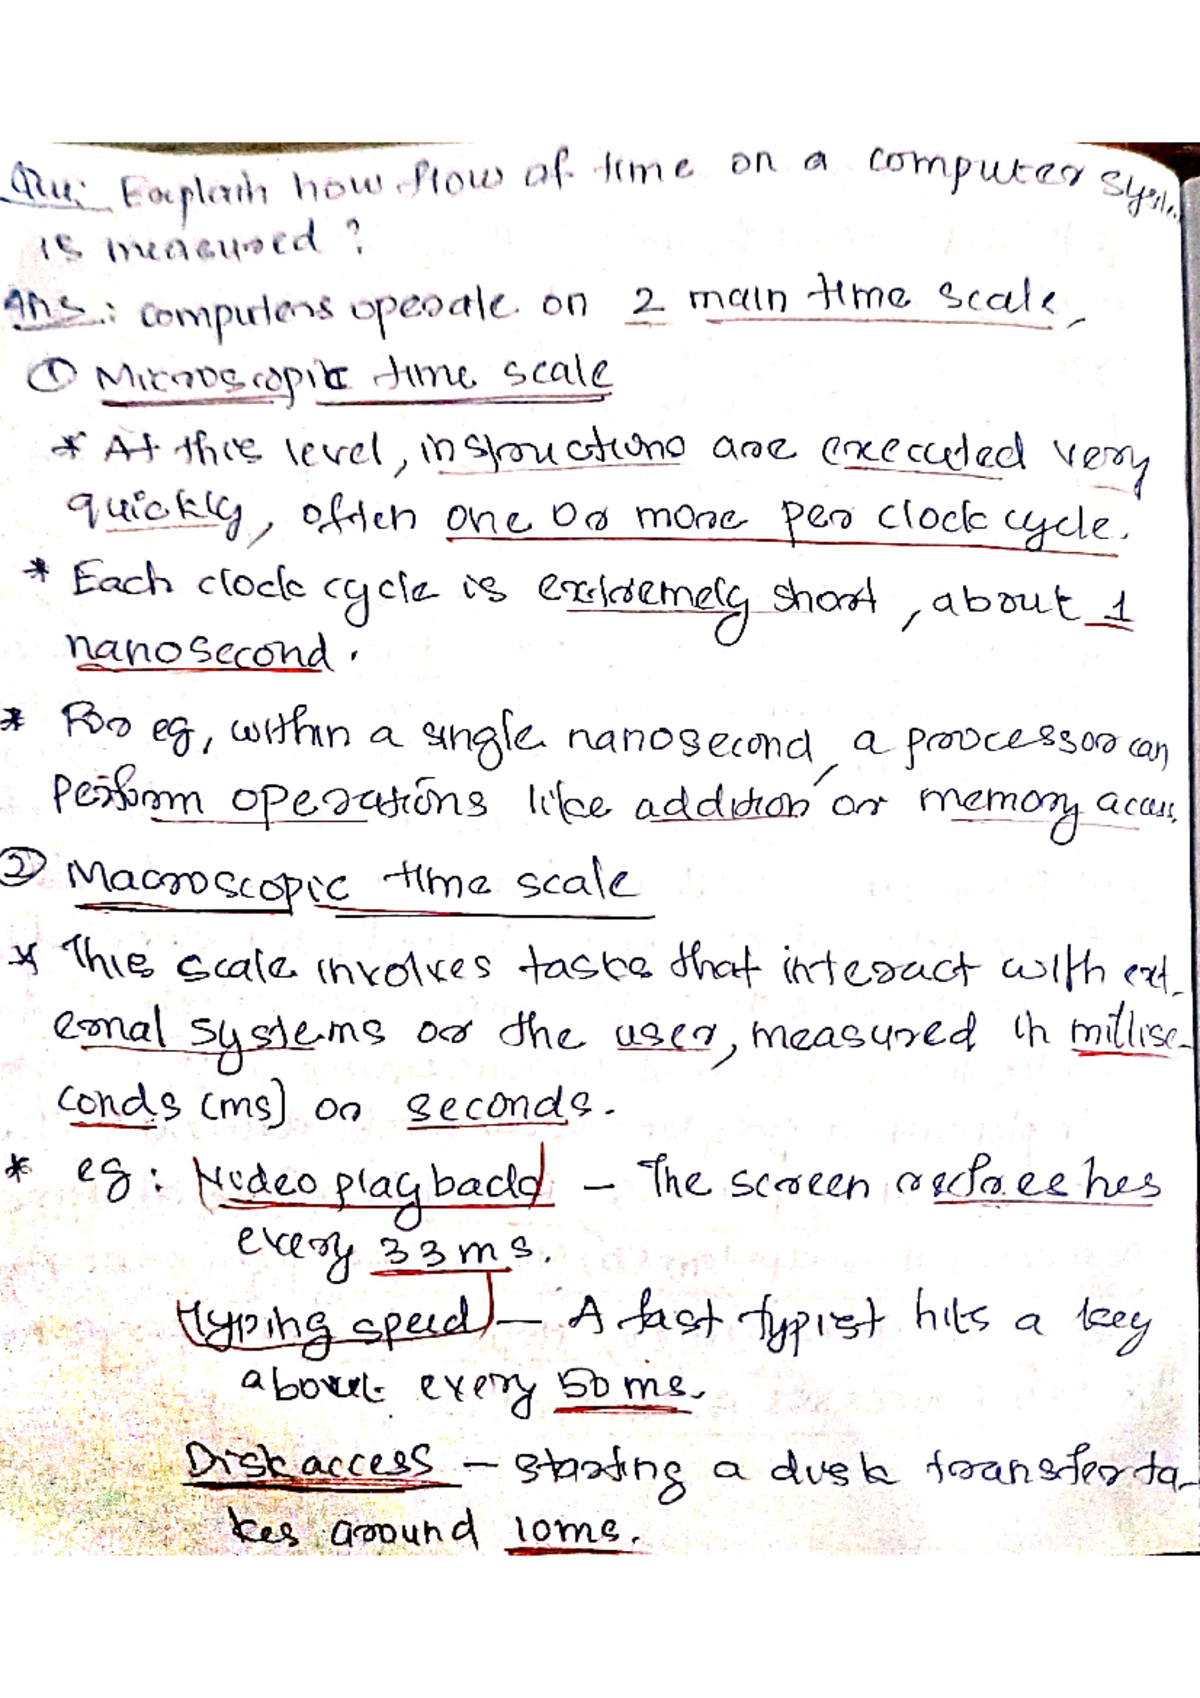 Qu: Explain how flow of time on a computer Syst
is measured?
Ans: computers operate on 2 main time scale,
① Microscopic time scale
* At this level, instructions are executed very
quickly, often one or more per clock cycle.
* Each clock cycle is extremely short, about 1
nanosecond.
* For eg, within a single nanosecond, a processor can
perform operations like addition or memory access.
② Macroscopic time scale
* This scale involves tasks that interact with ext-
ernal systems or the user, measured in millise-
conds (ms) or seconds.
* eg: Video playback - The screen refreshes
every 33ms.
Typing speed - A fast typist hits a key
about every 50 ms.
Disk access - starting a disk transfer ta-
kes around 10ms.